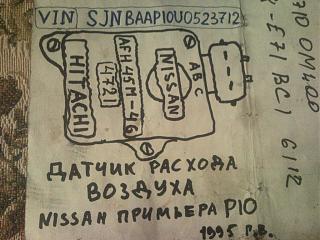 VIN SJNBAAP10U0523712
HITACHI
4721
AFH45M-46
NISSAN
A B C
ДАТЧИК РАСХОДА
ВОЗДУХА
NISSAN ПРИМЬЕРА P10
1995 г.в.
710 OM400
E71 BC1 6112